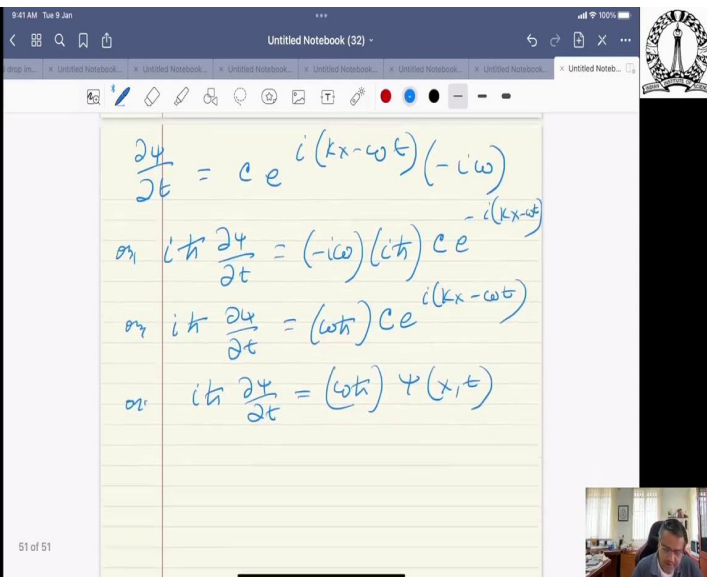 9:41 AM Tue 9 Jan
100%
Untitled Notebook (32)
drop im... × Untitled Notebook... × Untitled Notebook... × Untitled Notebook... × Untitled Notebook... × Untitled Notebook... × Untitled Notebook... × Untitled Noteb...
∂ψ/∂t = c e^{i(kx-ωt)} (-iω)
or, iħ ∂ψ/∂t = (-iω)(iħ) C e^{-i(kx-ωt)}
or, iħ ∂ψ/∂t = (ωħ) C e^{i(kx-ωt)}
or, iħ ∂ψ/∂t = (ωħ) Ψ(x,t)
51 of 51